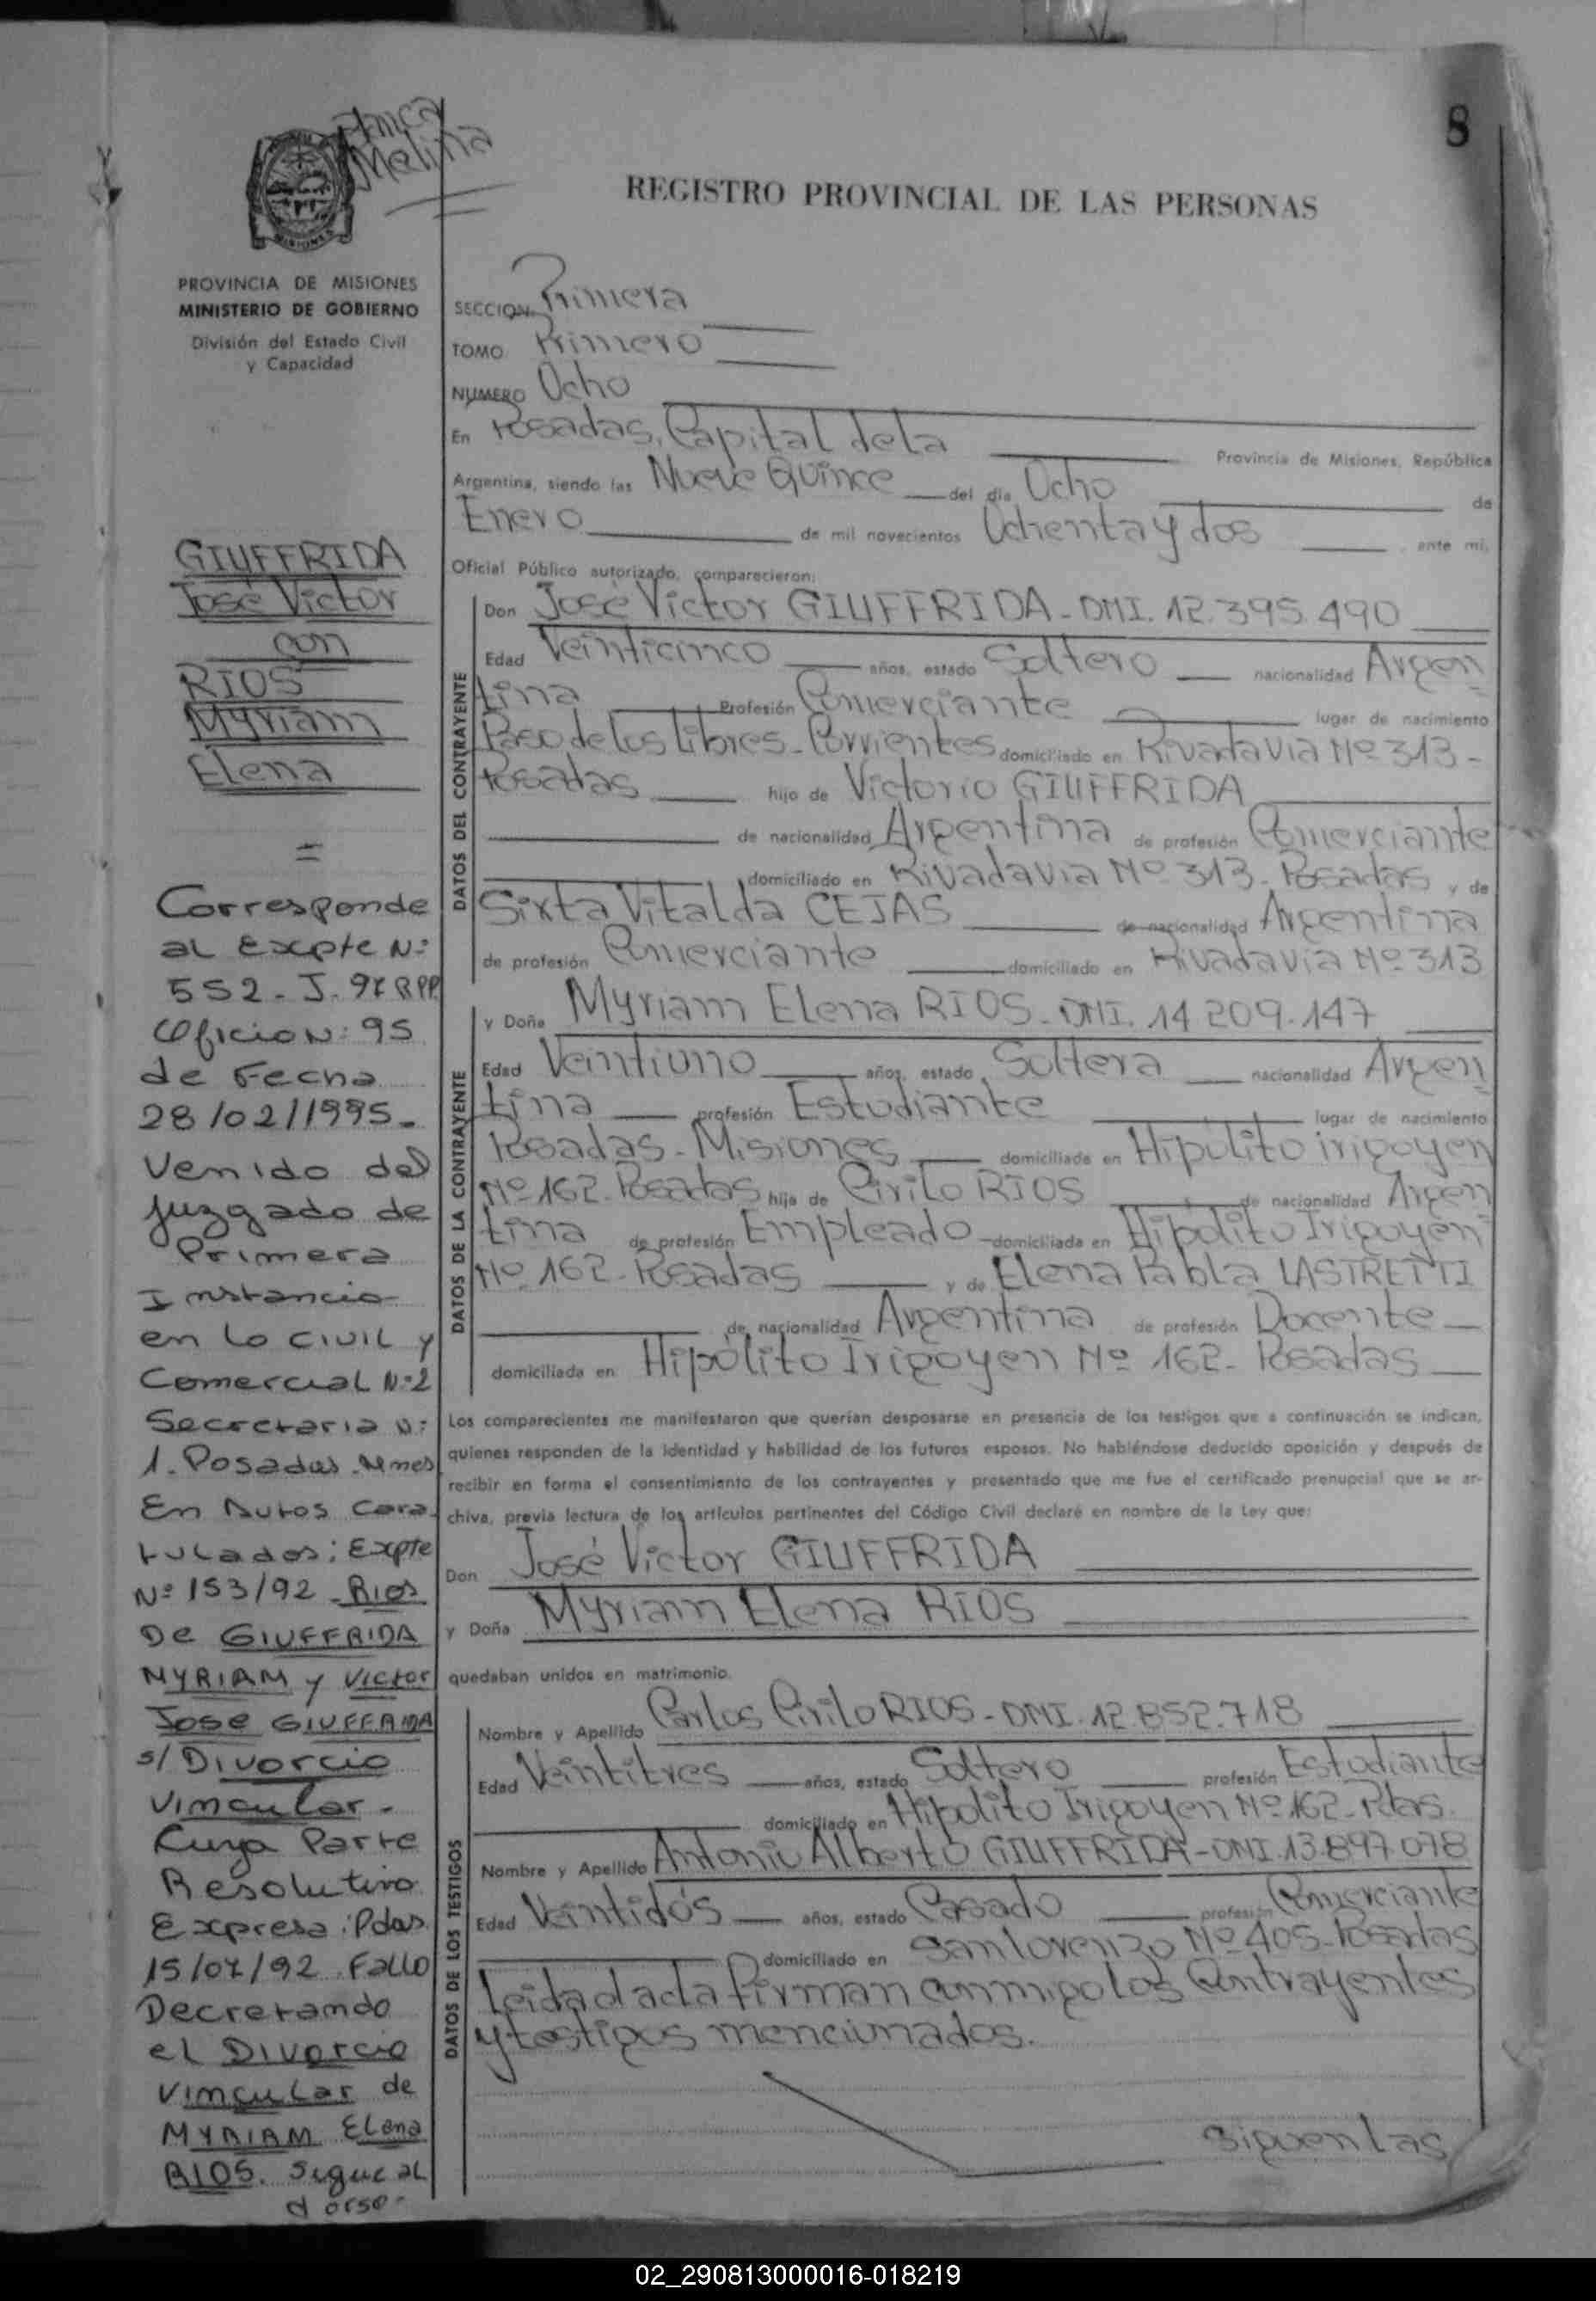 8
Melina
REGISTRO PROVINCIAL DE LAS PERSONAS
MISIONES
PROVINCIA DE MISIONES
MINISTERIO DE GOBIERNO
División del Estado Civil
y Capacidad
GIUFFRIDA
José Victor
con
RIOS
Myriam
Elena
=
Corresponde
al Expte N:
552 - J. 9
Oficio N: 95
de Fecha
28/02/1995.
Venido del
Juzgado de
Primera
Instancia
en lo civil y
Comercial N:2
Secretaria N:
1. Posadas. Mnes
En Autos Cara
tulados: Expte
Nº 153/92 - Rios
De GIUFFRIDA
MYRIAM y Victor
Jose GIUFFRIDA
s/ Divorcio
Vincular.
Cuya Parte
Resolutiva
Expresa: Pdas
15/07/92. Fallo
Decretando
el Divorcio
Vincular de
MYRIAM Elena
RIOS. Sigue al
dorso-
SECCION Primera
TOMO Primero
NUMERO Ocho
En Posadas, Capital de la Provincia de Misiones, República
Argentina, siendo las Nueve Quince del día Ocho de
Enero de mil novecientos Ochenta y dos ante mi,
Oficial Público autorizado, comparecieron:
DATOS DEL CONTRAYENTE
Don José Victor GIUFFRIDA - DNI. 12.395.490
Edad Veinticinco años, estado Soltero nacionalidad Argen
tina Profesión Comerciante lugar de nacimiento
Paso de los Libres - Corrientes domiciliado en Rivadavia Nº 313 -
Posadas hijo de Victorio GIUFFRIDA
de nacionalidad Argentina de profesión Comerciante
domiciliado en Rivadavia Nº 313 - Posadas y de
Sixta Vitalda CEJAS de nacionalidad Argentina
de profesión Comerciante domiciliado en Rivadavia Nº 313
DATOS DE LA CONTRAYENTE
y Doña Myriam Elena RIOS - DNI. 14.209.147
Edad Veintiuno años, estado Soltera nacionalidad Argen
tina profesión Estudiante lugar de nacimiento
Posadas - Misiones domiciliada en Hipólito Irigoyen
Nº 162 - Posadas hija de Cirilo RIOS de nacionalidad Argen
tina de profesión Empleado - domiciliada en Hipólito Irigoyen
Nº 162 - Posadas y de Elena Pabla LASTRETTI
de nacionalidad Argentina de profesión Docente
domiciliada en Hipólito Irigoyen Nº 162 - Posadas
Los comparecientes me manifestaron que querían desposarse en presencia de los testigos que a continuación se indican,
quienes responden de la identidad y habilidad de los futuros esposos. No habiéndose deducido oposición y después de
recibir en forma el consentimiento de los contrayentes y presentado que me fue el certificado prenupcial que se ar-
chiva, previa lectura de los artículos pertinentes del Código Civil declaré en nombre de la Ley que:
Don José Victor GIUFFRIDA
y Doña Myriam Elena RIOS
quedaban unidos en matrimonio.
DATOS DE LOS TESTIGOS
Nombre y Apellido Carlos Cirilo RIOS - DNI. 12.852.718
Edad Veintitres años, estado Soltero profesión Estudiante
domiciliado en Hipólito Irigoyen Nº 162 - Pdas.
Nombre y Apellido Antonio Alberto GIUFFRIDA - DNI. 13.897.078
Edad Veintidós años, estado Casado profesión Comerciante
domiciliado en San Lorenzo Nº 405 - Posadas
Leida el acta firman conmigo los Contrayentes
y testigos mencionados.
Siguen las
02_290813000016-018219